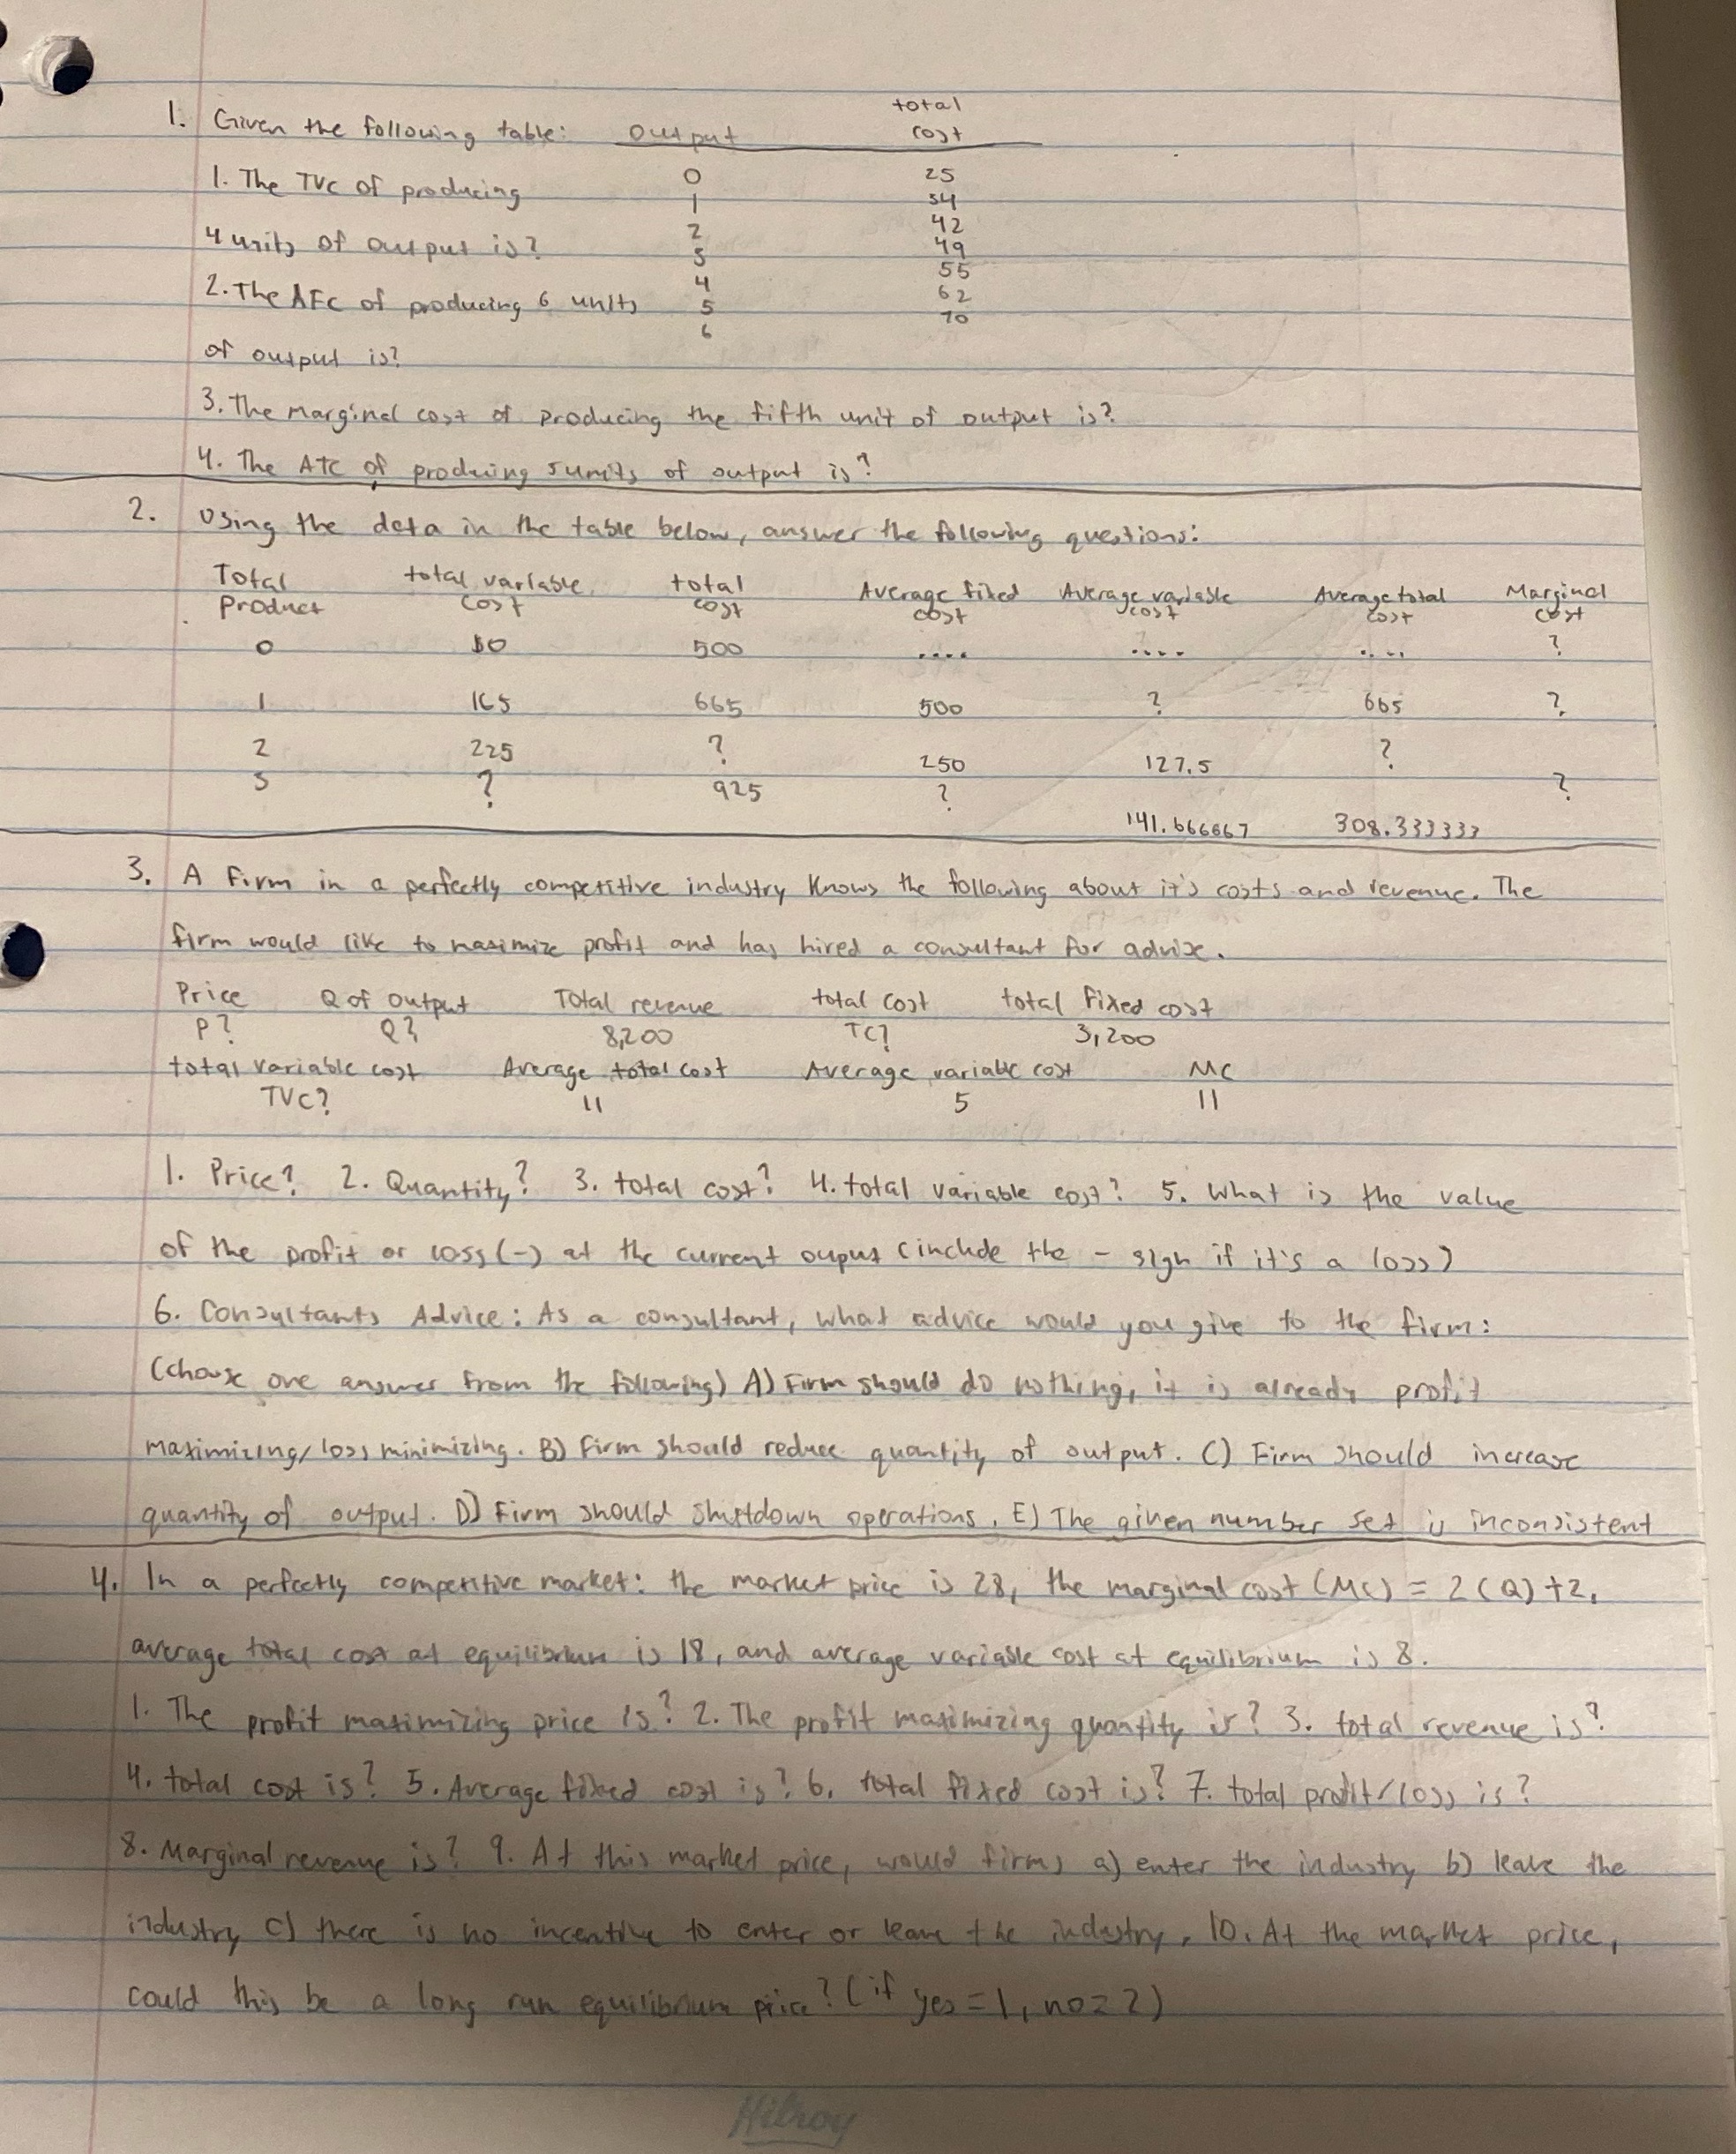 total
1. Given the following table: output cost
1. The TVC of producing 0 25
1 34
4 units of output is? 2 42
3 49
4 55
2. The AFC of producing 6 units 5 62
6 70
of output is?
3. The Marginal cost of producing the fifth unit of output is?
4. The ATC of producing 5 units of output is?
2. Using the data in the table below, answer the following questions:
Total total variable total Average fixed Average variable Average total Marginal
Product cost cost cost cost cost cost
0 $0 500 .... .... .... ?
1 165 665 500 ? 665 ?
2 225 ? 250 127.5 ?
3 ? 925 ? ?
141.666667 308.333333
3. A Firm in a perfectly competitive industry knows the following about it's costs and revenue. The
firm would like to maximize profit and has hired a consultant for advice.
Price Q of output Total revenue total cost total fixed cost
P? Q? 8,200 TC? 3,200
total variable cost Average total cost Average variable cost MC
TVC? 11 5 11
1. Price? 2. Quantity? 3. total cost? 4. total variable cost? 5. What is the value
of the profit or loss (-) at the current ouput (include the - sign if it's a loss)
6. Consultants Advice: As a consultant, what advice would you give to the firm:
(choose one answer from the following) A) Firm should do nothing, it is already profit
maximizing/loss minimizing. B) Firm should reduce quantity of output. C) Firm should increase
quantity of output. D) Firm should shutdown operations. E) The given number set is inconsistent
4. In a perfectly competitive market: the market price is 28, the marginal cost (MC) = 2(Q)+2,
average total cost at equilibrium is 18, and average variable cost at equilibrium is 8.
1. The profit maximizing price is? 2. The profit maximizing quantity is? 3. total revenue is?
4. total cost is? 5. Average fixed cost is? 6. total fixed cost is? 7. total profit/loss is?
8. Marginal revenue is? 9. At this market price, would firms a) enter the industry b) leave the
industry c) there is no incentive to enter or leave the industry. 10. At the market price,
could this be a long run equilibrium price? (if yes=1, no=2)
Hilroy